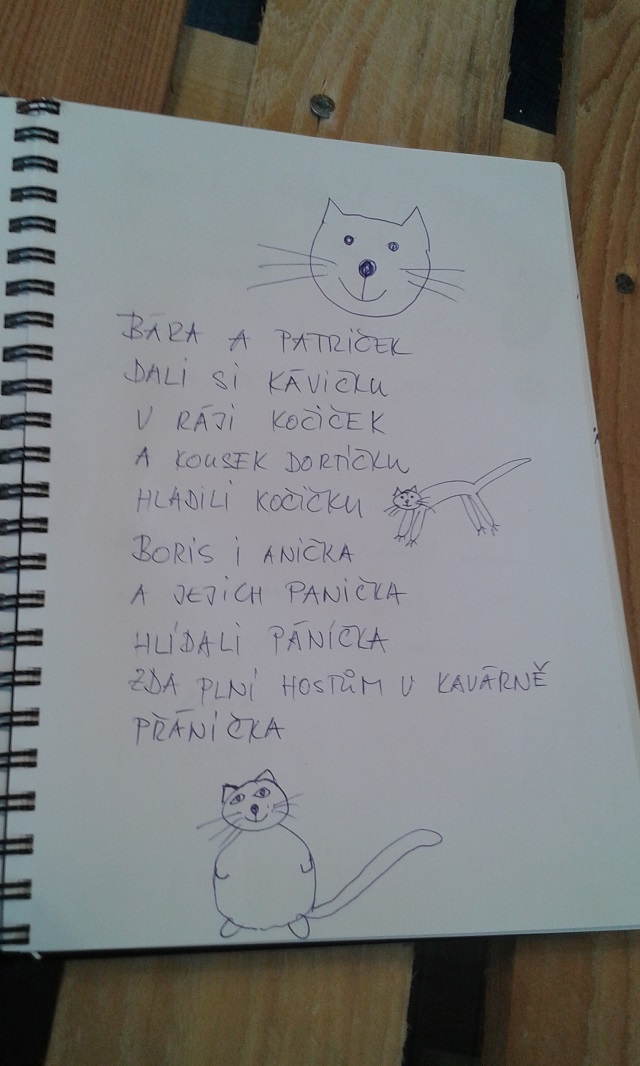 BÁRA A PATRIČEK
DALI SI KÁVIČKU
V RÁJI KOČIČEK
A KOUSEK DORTÍČKU
HLADILI KOČIČKU
BORIS I ANIČKA
A JEJICH PANIČKA
HLÍDALI PÁNÍČKA
ZDA PLNÍ HOSTŮM V KAVÁRNĚ
PŘÁNÍČKA